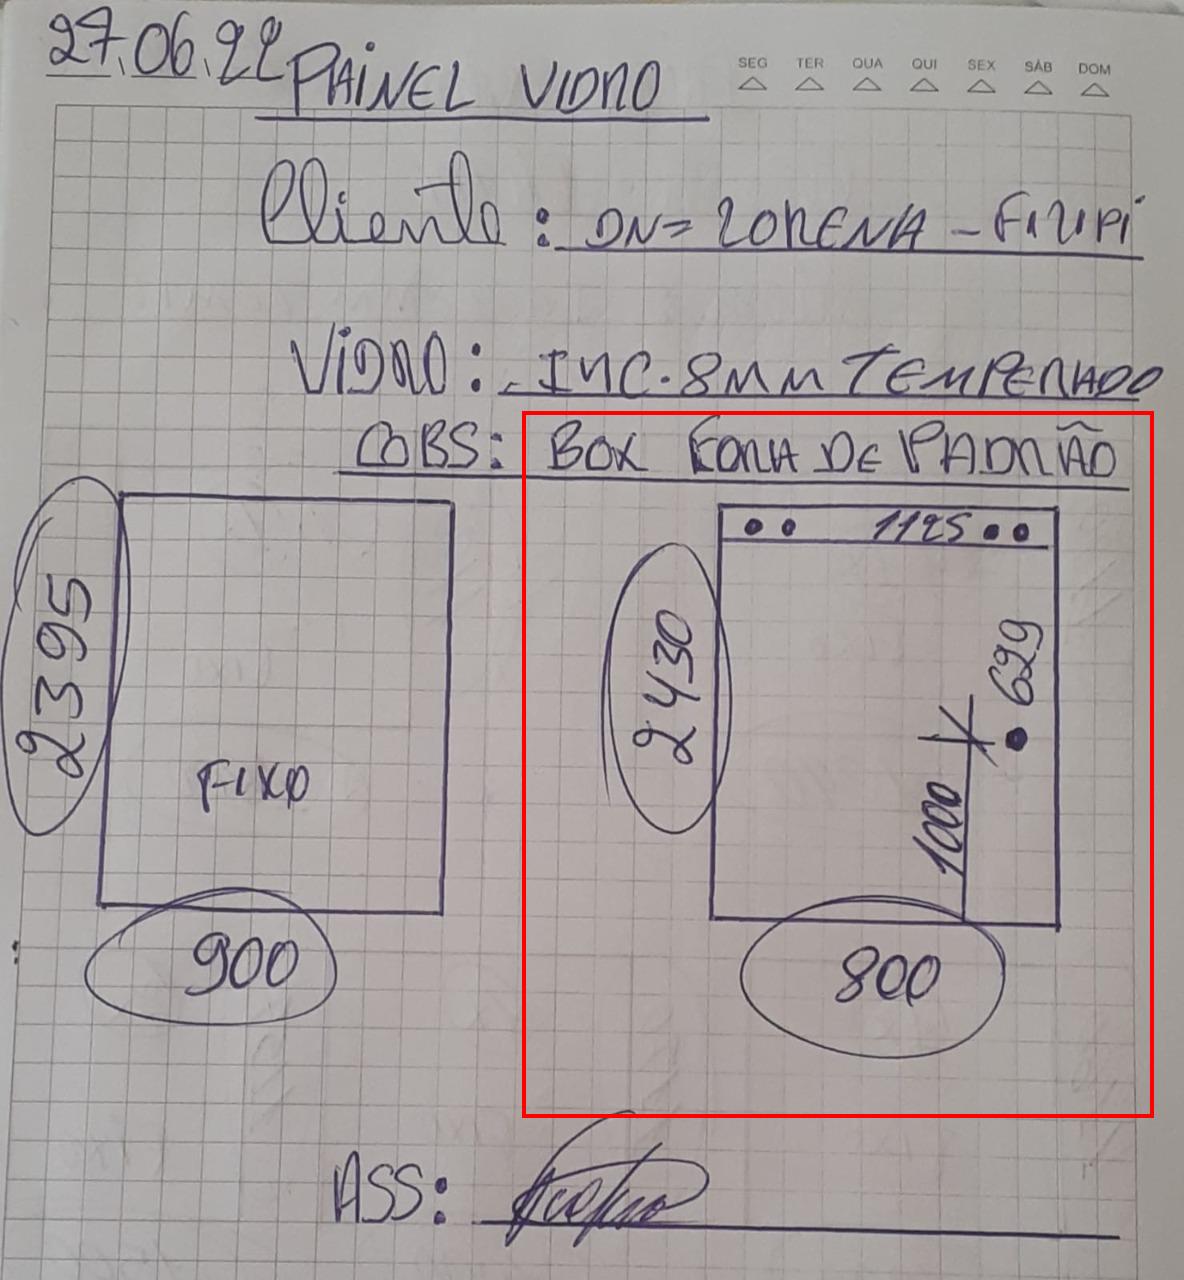 27.06.22 PAINEL VIDRO
SEG TER QUA QUI SEX SÁB DOM
Cliente: DN= LORENA - FILIPI
VIDRO: INC. 8MM TEMPERADO
OBS: BOX FORA DE PADRÃO
1125
2395
2430
629
FIXO
1000
900
800
ASS: